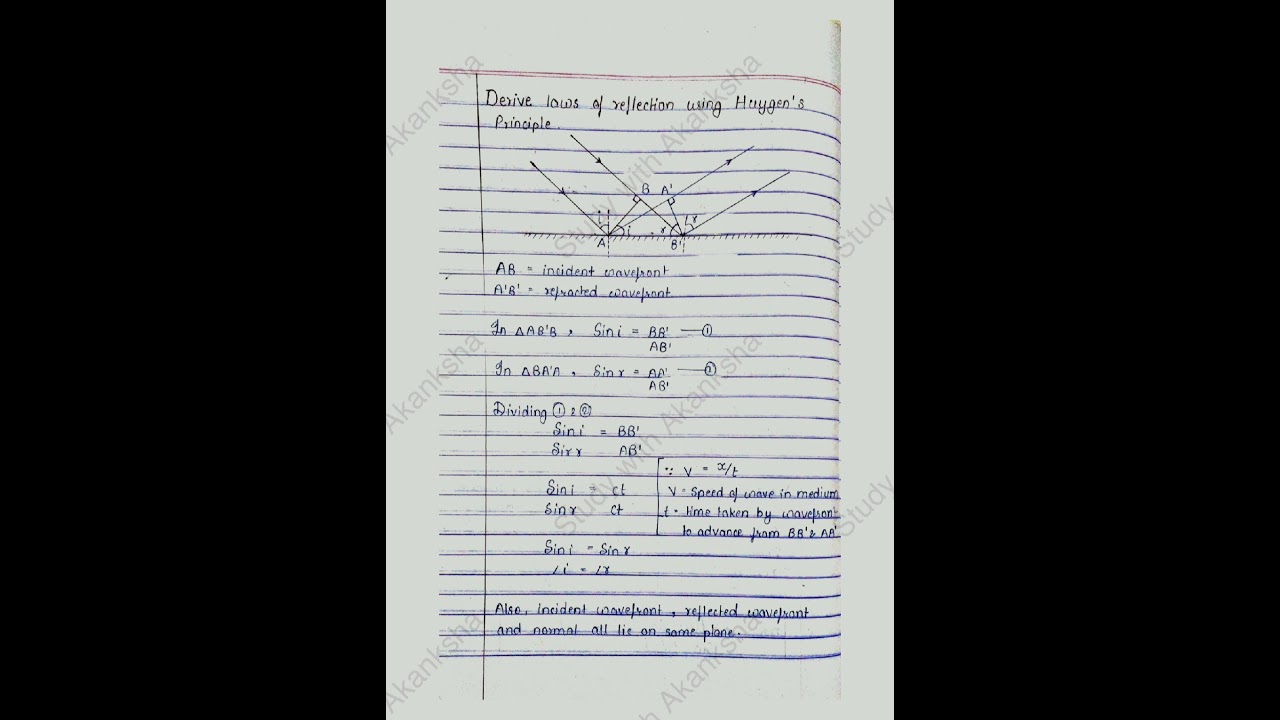 Derive laws of reflection using Huygen's
Principle.
B A'
i i r ∠r
A B'
AB = incident wavefront
A'B' = refracted wavefront
In △AB'B , Sin i = BB' —①
AB'
In △BA'A , Sin r = AA' —②
AB'
Dividing ① & ②
Sin i = BB'
Sin r AB'
∵ V = x/t
Sin i = ct
V = Speed of wave in medium
Sin r ct
t = time taken by wavefront
to advance from BB' & AA'
Sin i = Sin r
∠i = ∠r
Also, incident wavefront, reflected wavefront
and normal all lie on same plane.
Study With Akanksha